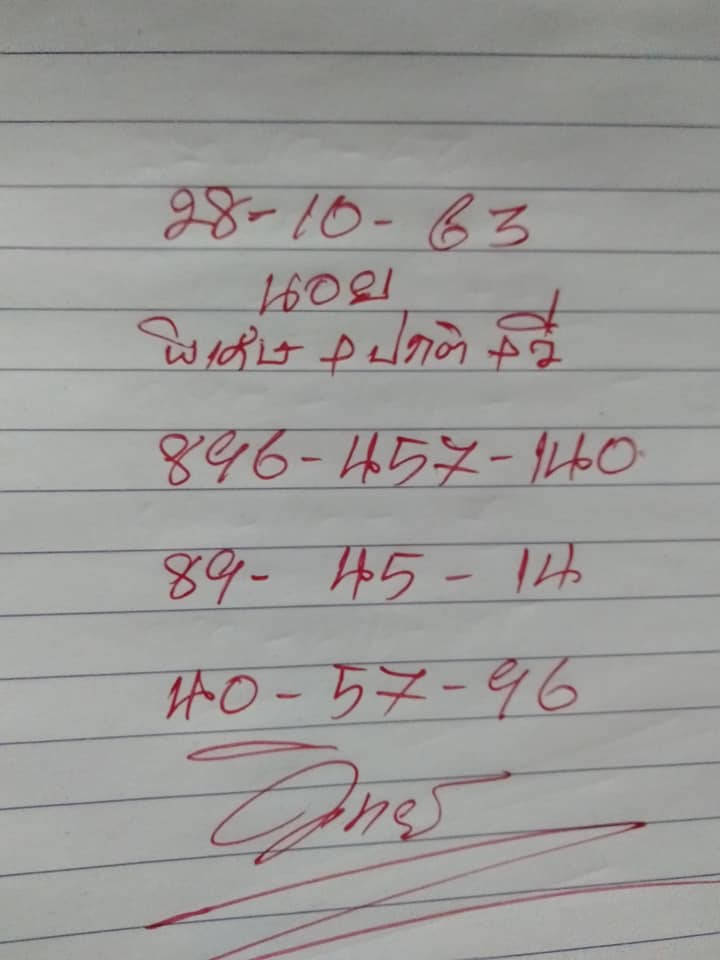 28-10-63
นอย
พิเศษ + ปกติ + วี
896-457-140
89- 45 - 14
40-57-96